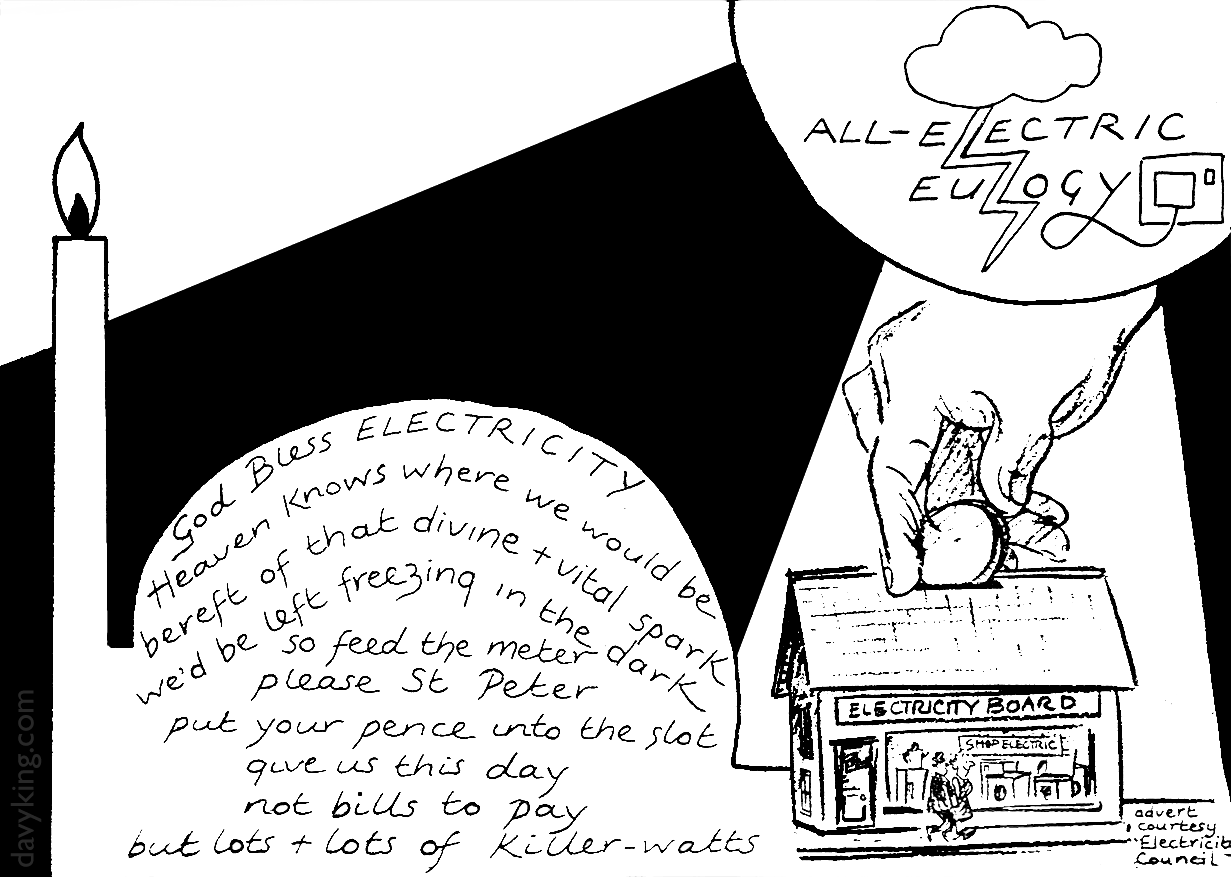 ALL-ELECTRIC
EULOGY
God Bless ELECTRICITY
Heaven knows where we would be
bereft of that divine + vital spark
we'd be left freezing in the dark
so feed the meter
please St Peter
put your pence into the slot
give us this day
not bills to pay
but lots + lots of killer-watts
ELECTRICITY BOARD
SHOP ELECTRIC
advert
courtesy
Council
davyking.com